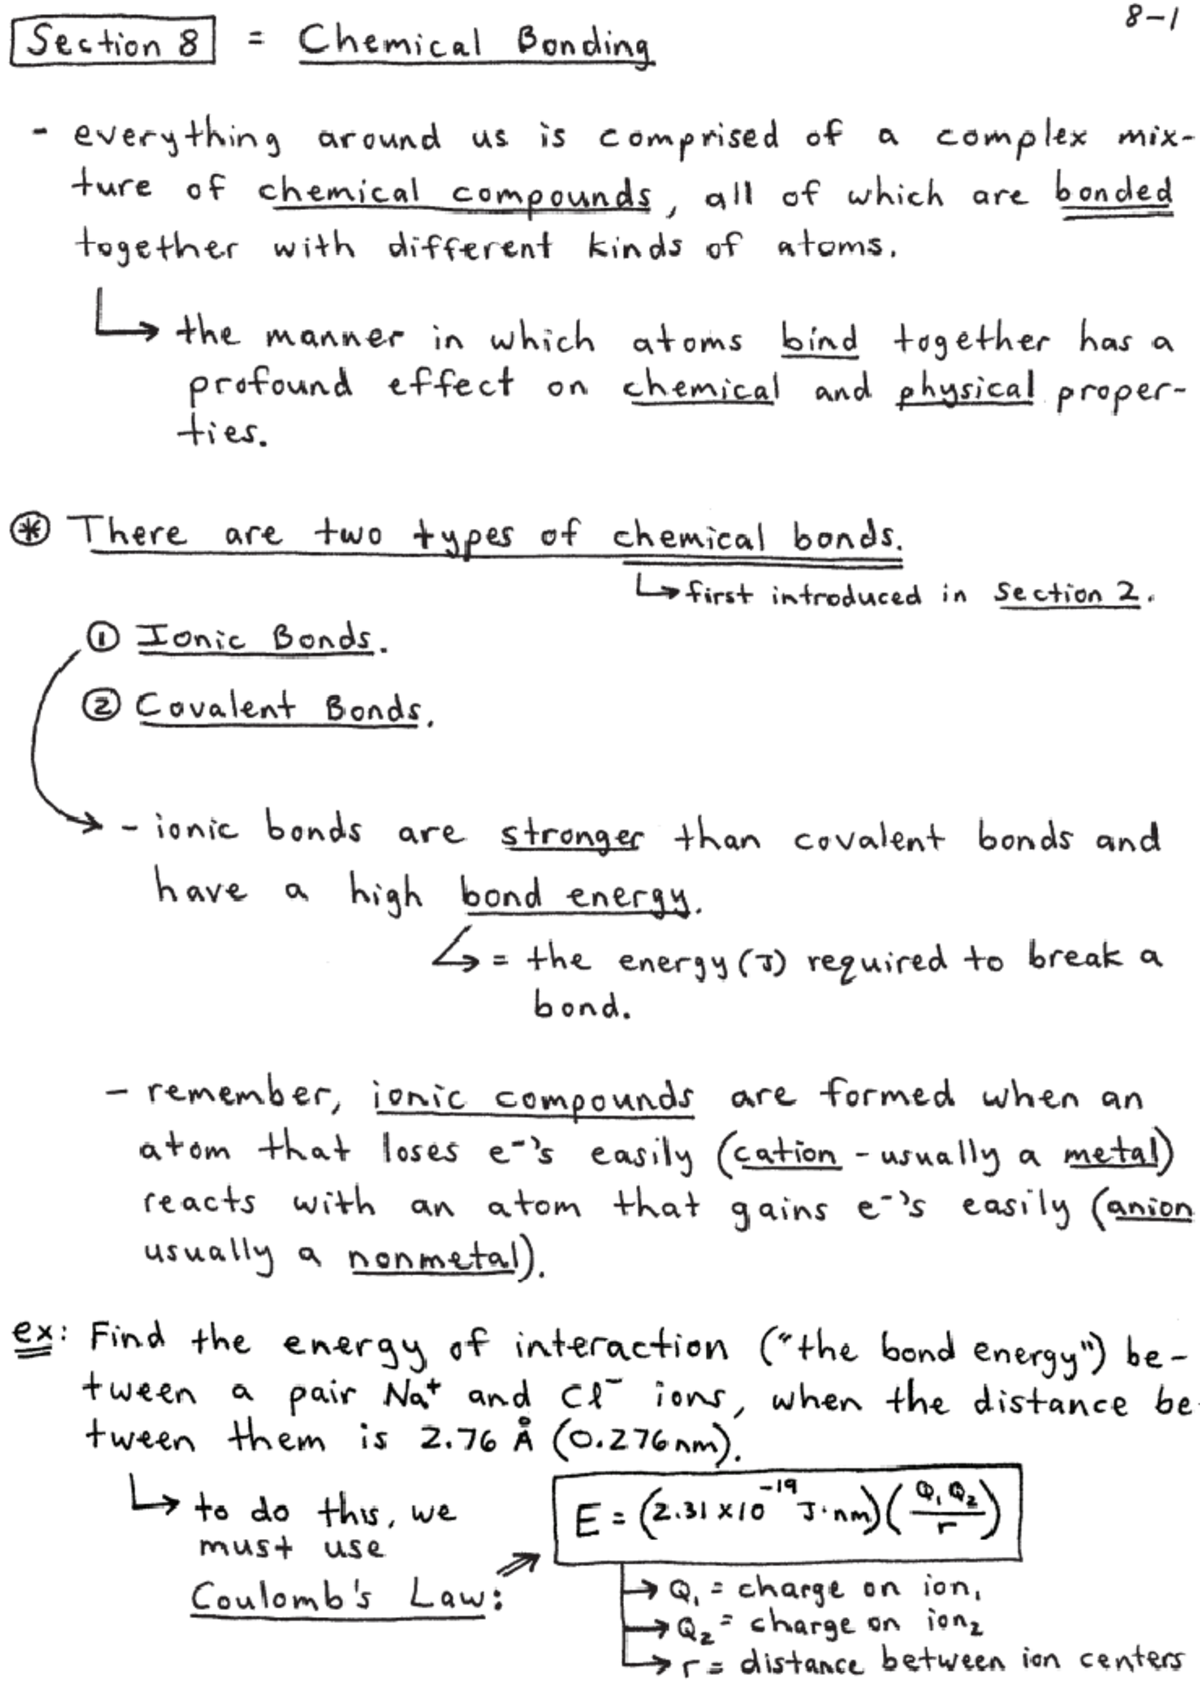 8-1
Section 8 = Chemical Bonding
- everything around us is comprised of a complex mix-
ture of chemical compounds, all of which are bonded
together with different kinds of atoms.
↳ the manner in which atoms bind together has a
profound effect on chemical and physical proper-
ties.
⊛ There are two types of chemical bonds.
↳ first introduced in Section 2.
① Ionic Bonds.
② Covalent Bonds.
→ - ionic bonds are stronger than covalent bonds and
have a high bond energy.
↳ = the energy (J) required to break a
bond.
- remember, ionic compounds are formed when an
atom that loses e⁻'s easily (cation - usually a metal)
reacts with an atom that gains e⁻'s easily (anion
usually a nonmetal).
ex: Find the energy of interaction ("the bond energy") be-
tween a pair Na⁺ and Cl⁻ ions, when the distance be-
tween them is 2.76 Å (0.276nm).
↳ to do this, we
must use
Coulomb's Law: ⇒ E = (2.31 x 10⁻¹⁹ J·nm)(Q₁Q₂/r)
→ Q₁ = charge on ion₁
→ Q₂ = charge on ion₂
→ r = distance between ion centers